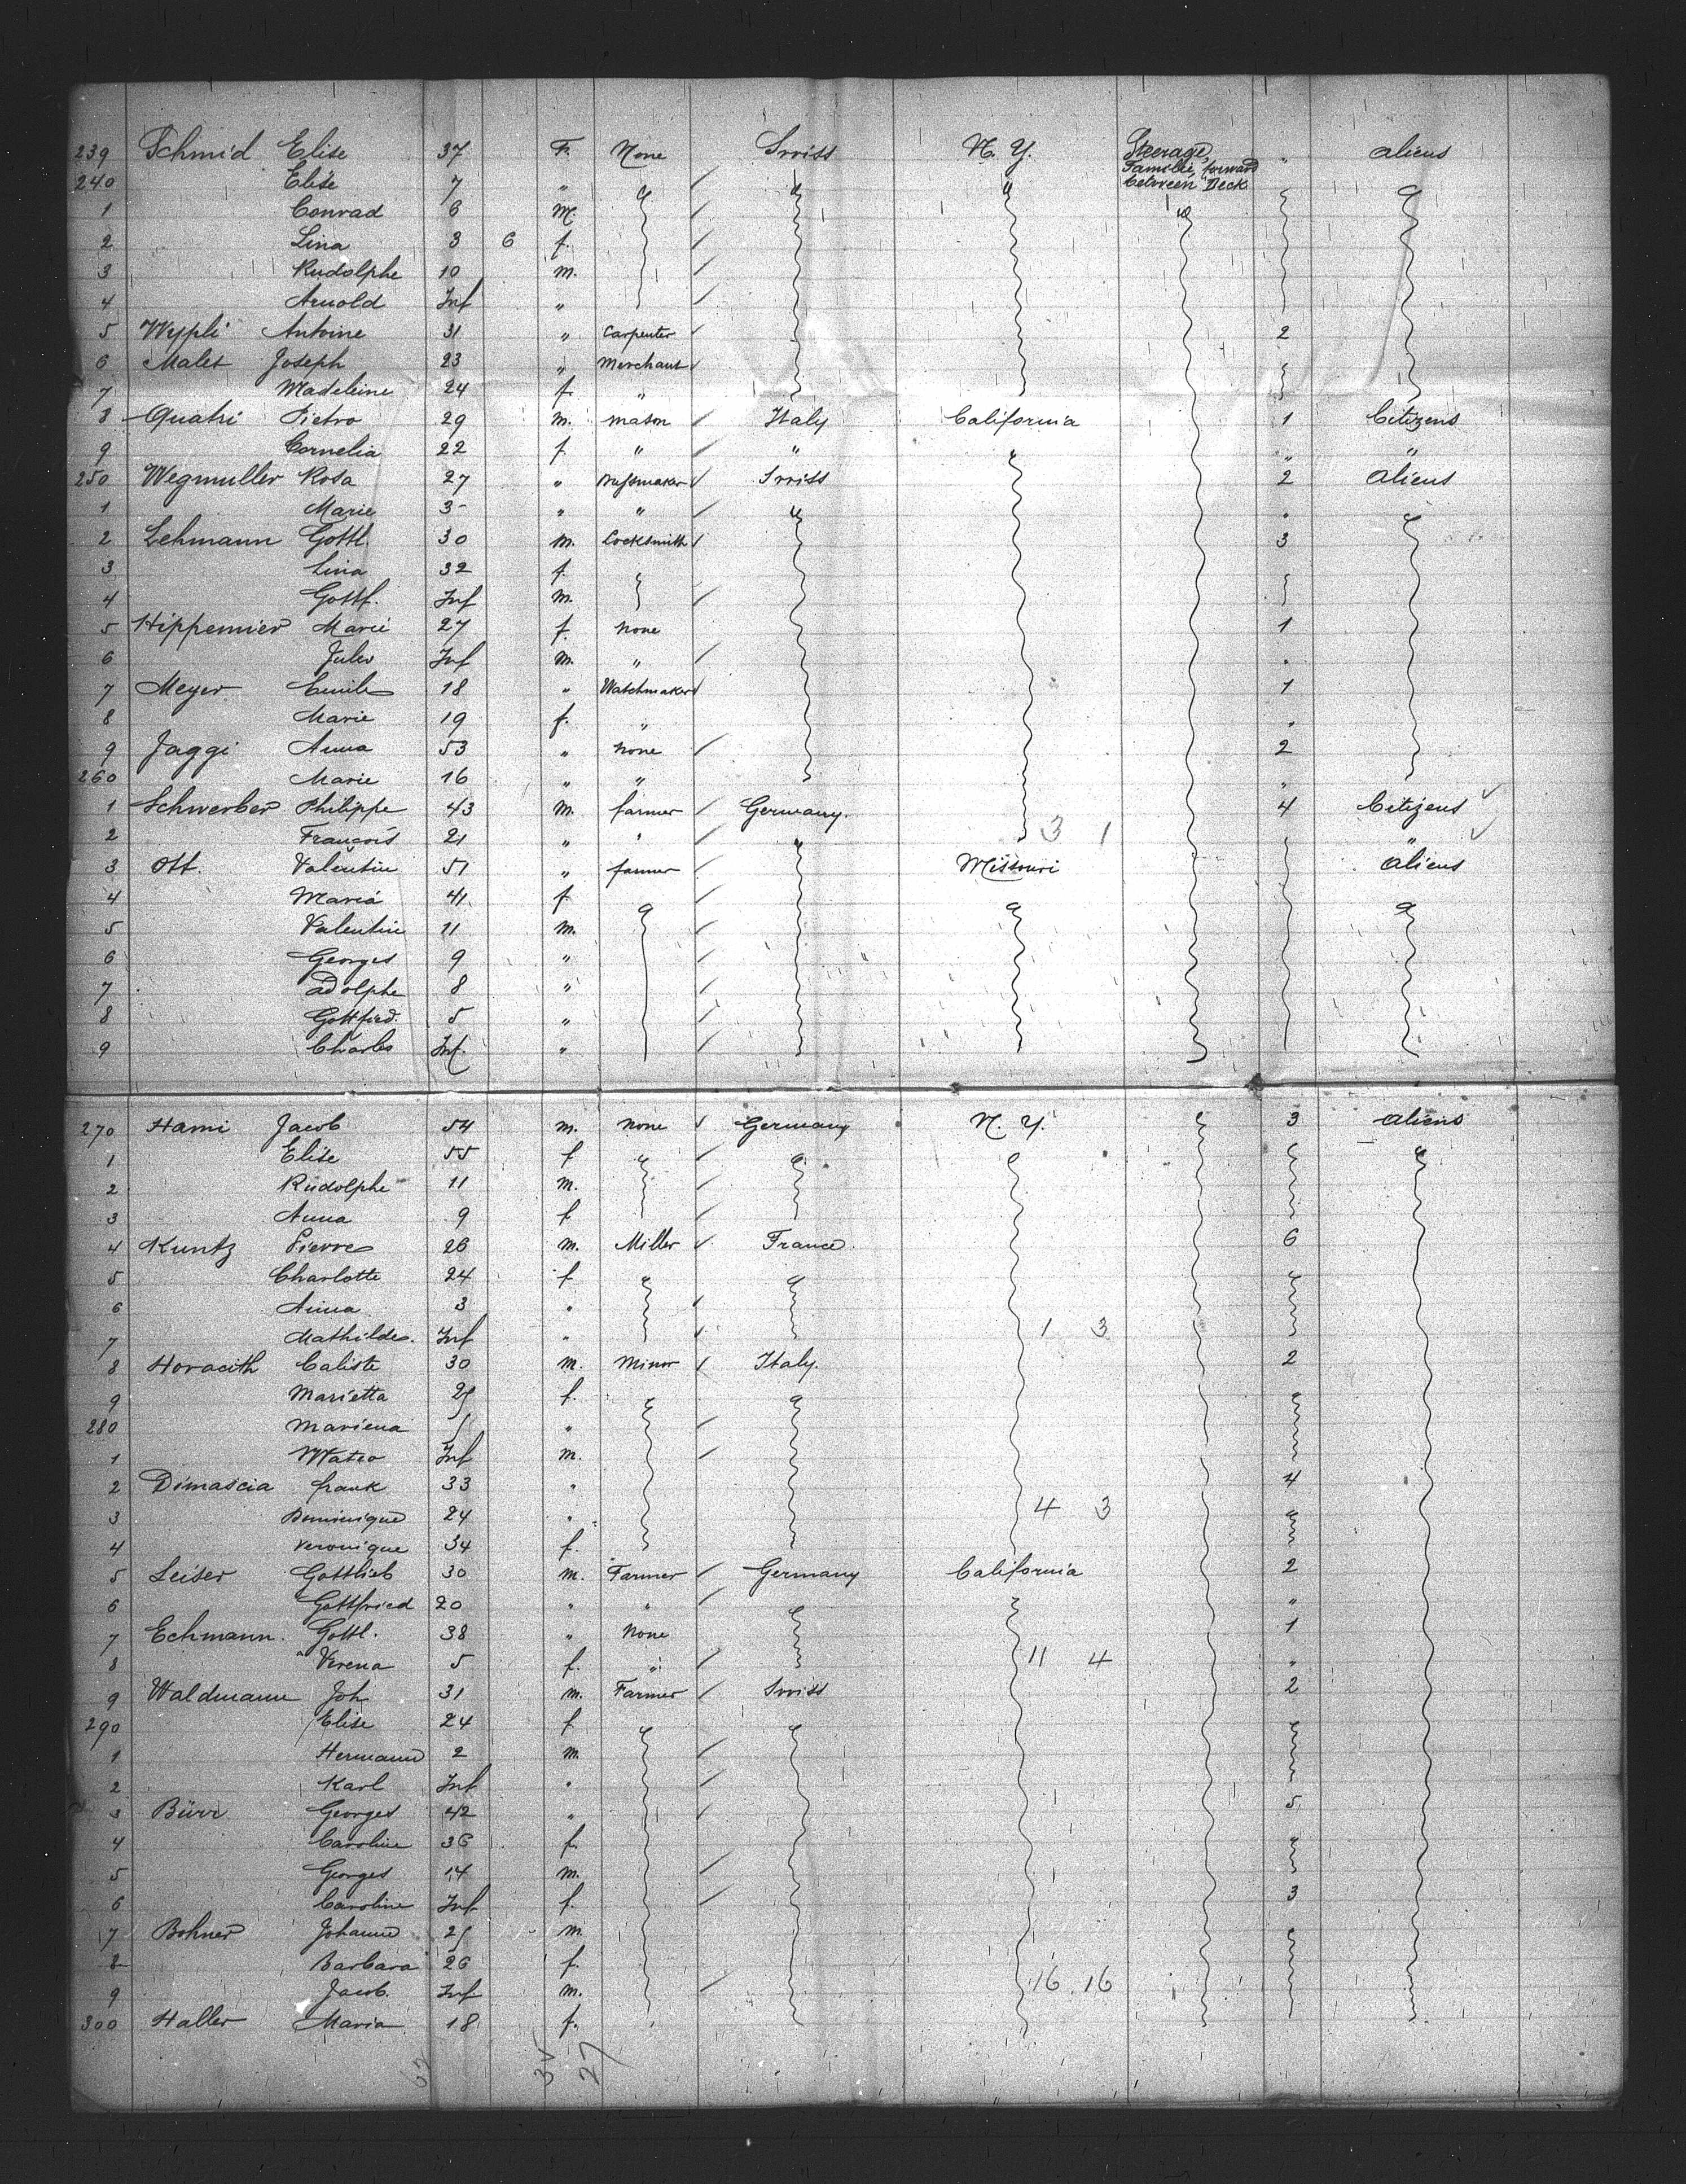 239 Schmid Elise 37 F. None Swiss N. Y. Steerage, Familie, forward between Deck " aliens
240 Elise 7 " " "
1 Conrad 6 M.
2 Lina 3 6 f.
3 Rudolphe 10 m.
4 Arnold Inf "
5 Wypli Antoine 31 " Carpenter 2
6 Malet Joseph 23 " Merchant
7 Madeleine 24 f. "
8 Quatri Pietro 29 m. mason Italy California 1 Citizens
9 Cornelia 22 f " " " " "
250 Wegmuller Rosa 27 " Dressmaker Swiss 2 aliens
1 Marie 3 " " "
2 Lehmann Gottl. 30 m. Locksmith 3
3 Lina 32 f.
4 Gottf. Inf m.
5 Hippemier Marie 27 f. None 1
6 Jules Inf m. " "
7 Meyer Emile 18 " Watchmaker 1
8 Marie 19 f. " "
9 Jaggi Anna 53 " None 2
260 Marie 16 " " "
1 Schwerber Philippe 43 m. farmer Germany. 4 Citizens
2 François 21 " " " 3 1 "
3 Ott. Valentin 51 " farmer Missouri aliens
4 Maria 41 f
5 Valentin 11 m.
6 Georges 9 "
7 adolphe 8 "
8 Gottfried. 5 "
9 Charles Inf. "
270 Hami Jacob 54 m. None Germany N. Y. 3 aliens
1 Elise 55 f
2 Rudolphe 11 m.
3 Anna 9 f
4 Kuntz Pierre 26 m. Miller France. 6
5 Charlotte 24 f
6 Anna 3 "
7 Mathilde. Inf " 1 3
8 Horacith Caliste 30 m. Minor Italy. 2
9 Marietta 25 f.
280 Mariena 5 "
1 Mateo Inf m.
2 Dimascia frank 33 " 4
3 Dominique 24 " 4 3
4 Veronique 34 f.
5 Leiser Gottlieb 30 m. Farmer Germany California 2
6 Gottfried 20 " " "
7 Echmann. Gottl. 38 " None 1
8 Verena 5 f. " 11 4 "
9 Waldmann Joh 31 m. Farmer Swiss 2
290 Elise 24 f
1 Hermann 2 m.
2 Karl Inf "
3 Bürr Georges 42 " 5
4 Caroline 36 f.
5 Georges 14 m.
6 Caroline Inf f. 3
7 Bohner Johann 25 m.
8 Barbara 26 f.
9 Jacob. Inf m. 16 16
300 Haller Maria 18 f.
62 35 27